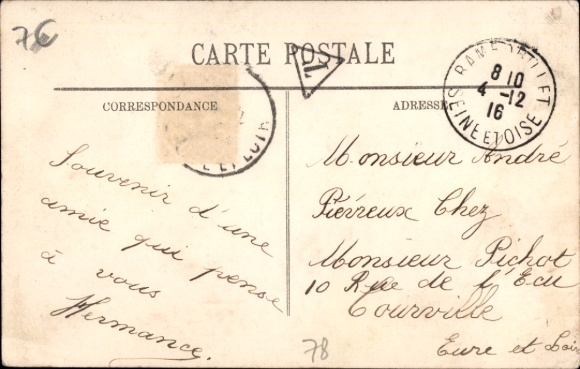 76
CARTE POSTALE
T
CORRESPONDANCE
ADRESSE
RAMBOUILLET
8 10
4 -12
16
SEINE ET OISE
ET LOIR
Souvenir d'une
amie qui pense
à vous
Hermance.
Monsieur André
Piévreux Chez
Monsieur Pichot
10 Rue de l'Ecu
Courville
Eure et Loir
78